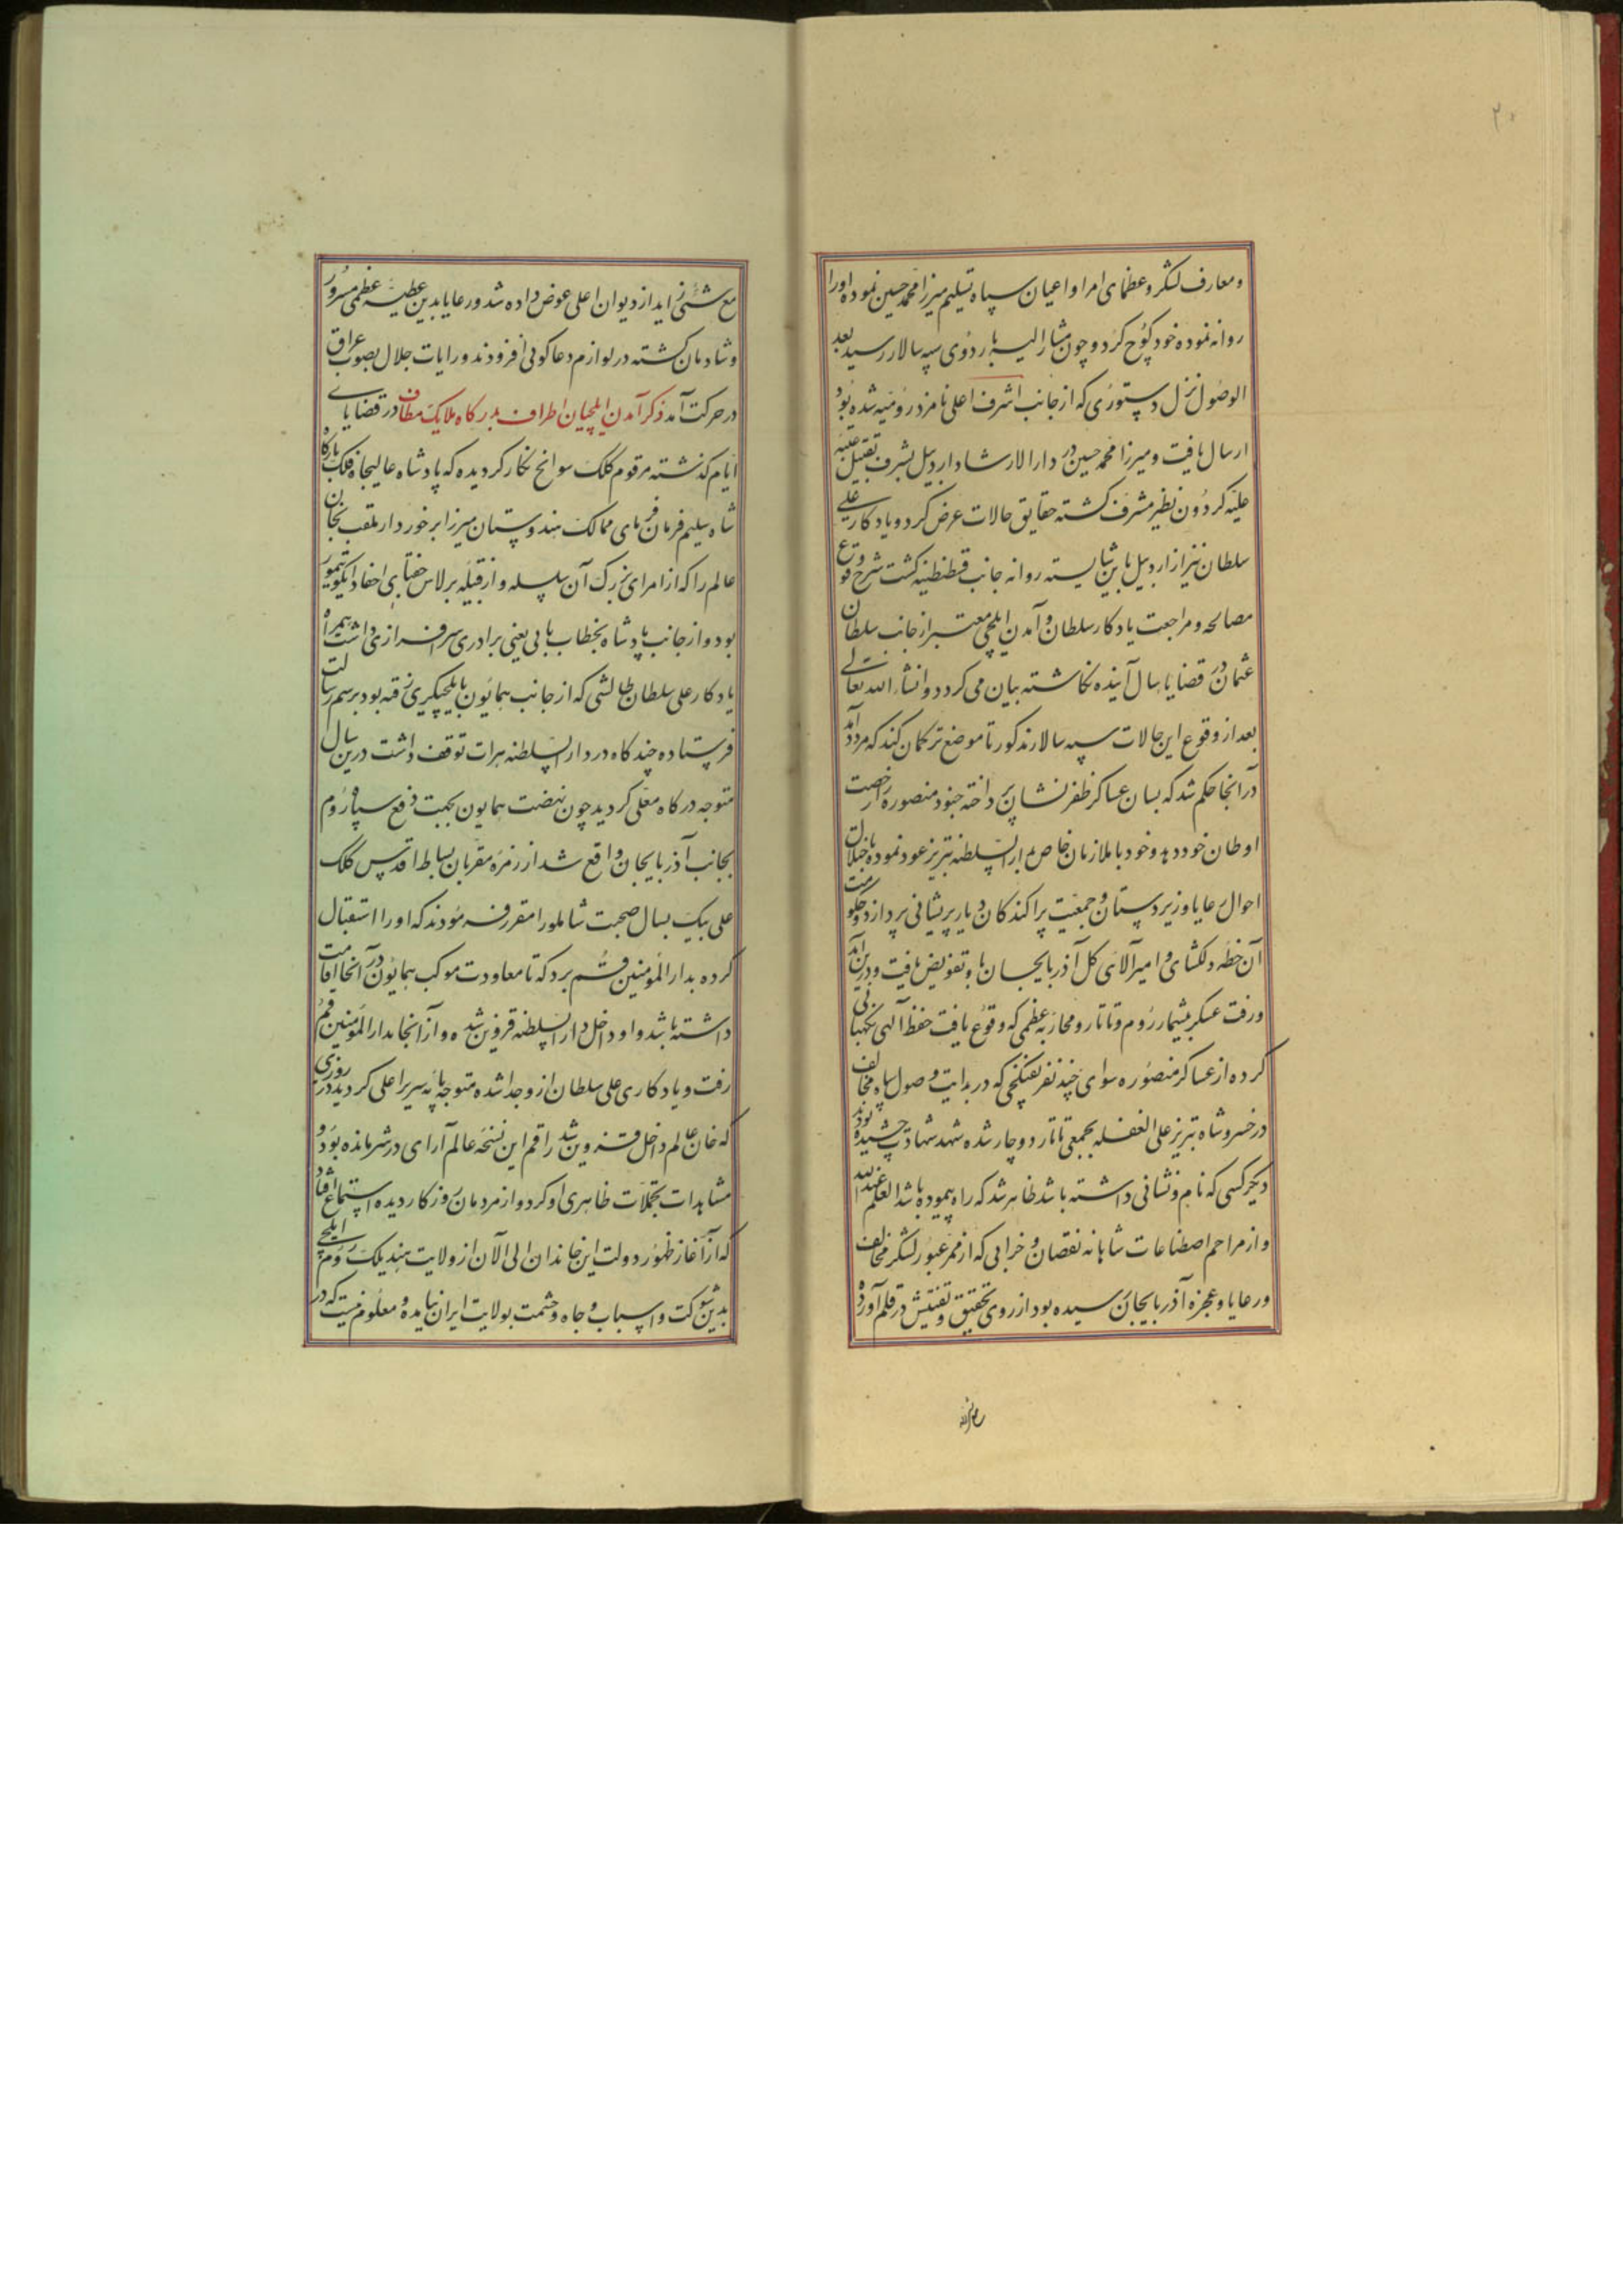 ۲۰
و معارف لشکر و عظمای امرا و اعیان سپاه تسلیم میرزا محمد حسین نموده او را
روانه نموده خود کوچ کرد و چون مشار الیه باردوی سپه سالار رسید بعد
الوصول نزل دستوری که از جانب اشرف اعلی نامزد رومیه شده بود
ارسال یافت و میرزا محمد حسین در دار الارشاد اردبیل بشرف تقبیل عتبه
علیه کردون نظیر مشرف کشته حقایق حالات عرض کرد و یادکار علی
سلطان نیز از اردبیل بآیین شایسته روانه جانب قسطنطنیه کشت شرح وقوع
مصالحه و مراجعت یادکار سلطان و آمدن ایلچی معتبر از جانب سلطان
عثمان در قضایا سال آینده نکاشته بیان می کردد و انشاء الله تعالی
بعد از وقوع این حالات سپه سالار مذکور تا موضع ترکمان کند که مردد آمد
در آنجا حکم شد که بسان عساکر ظفر نشان پرداخته جنود منصوره را رخصت
اوطان خود دهد و خود با ملازمان خاص بدار السلطنه تبریز عود نموده باختلال
احوال رعایا و زیردستان و جمعیت پراکندکان دیار پریشانی پردازد و حکومت
آن خطه دلکشای و امیر الامرائی کل آذربایجان باو تفویض یافت و درین آمد
و رفت عسکر بیشمار روم و تاتار و محاربه عظمی که وقوع یافت حفظ آلهی نکهبانی
کرده از عساکر منصوره سوای چند نفر تفنکچی که در بدایت وصول سپاه مخالف
در خسرو شاه تبریز علی الغفله بجمعی تاتار دوچار شده شهد شهادت چشیده بودند
دیکر کسی که نام و نشانی داشته باشد ظاهر نشد که راه پیموده باشد العلم عند الله
و از مراحم اصطناعات شاهانه نقصان و خرابی که از ممر عبور لشکر مخالف
و رعایا و عجزه آذربایجان رسیده بود از روی تحقیق و تفتیش در قلم آورده
مع شیئ زاید از دیوان اعلی عوض داده شد و رعایا بدین عطیه عظمی مسرور
و شادمان کشته در لوازم دعا کوئی افزودند و رایات جلال بصوب عراق
در حرکت آمد ذکر آمدن ایلچیان اطراف بدرکاه ملایک مطاف در قضایای
ایام کذشته مرقوم کلک سوانح نکار کردیده که پادشاه عالیجاه فلک بارکاه
شاه سلیم فرمان فرمای ممالک هندوستان میرزا برخوردار ملقب بخان
عالم را که از امرای بزرک آن سلسله و از قبیله برلاس جغتای احفاد ایکو تیمور
بود و از جانب پادشاه بخطاب بابی یعنی برادری سرافرازی داشت همراه
یادکار علی سلطان طالشی که از جانب همایون بایلچیکری رفته بود برسم رسالت
فرستاده چند کاه در دار السلطنه هرات توقف داشت درین سال
متوجه درکاه معلی کردید چون نهضت همایون بجهت دفع سپاه روم
بجانب آذربایجان واقع شد از زمره مقربان بساط اقدس کلک
علی بیک یساول صحبت شاملو را مقرر فرمودند که او را استقبال
کرده بدار المؤمنین قم برد که تا معاودت موکب همایون در آنجا اقامت
داشته باشد و او داخل دار السلطنه قزوین شده و از آنجا بدار المؤمنین قم
رفت و یادکاری علی سلطان از و جدا شده متوجه پایه سریر اعلی کردید در روزی
که خان عالم داخل قزوین شد راقم این نسخه عالم آرای در شهر مانده بود و
مشاهدات تجملات ظاهری او کرد و از مردمان روزکار دیده استماع افتاد
که از آغاز ظهور دولت این خاندان الی الآن از ولایت هند بلک روم ایلچی
بدین شوکت و اسباب و جاه و حشمت بولایت ایران نیامده و معلوم نیست که در